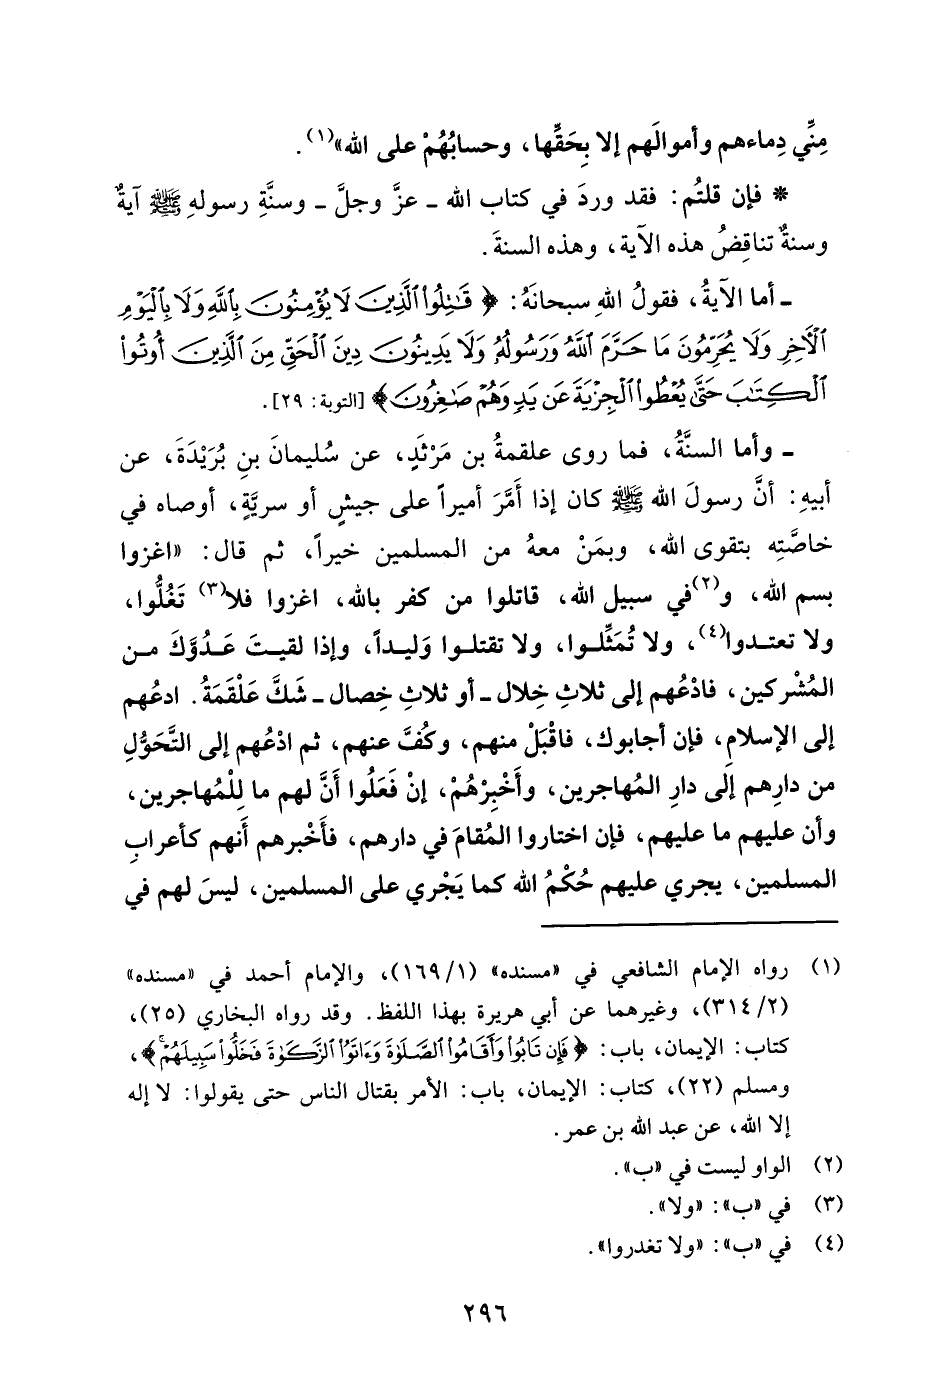 مِنِّي دِماءهم وأموالَهم إلا بِحَقِّها، وحسابُهُمْ على الله»(١).
* فإن قلتُم: فقد وردَ في كتاب الله ـ عزَّ وجلَّ ـ وسنَّةِ رسولهِ ﷺ آيةٌ
وسنةٌ تناقِضُ هذه الآية، وهذه السنةَ.
ـ أما الآيةُ، فقولُ اللهِ سبحانَهُ: ﴿ قَٰتِلُوا۟ ٱلَّذِينَ لَا يُؤۡمِنُونَ بِٱللَّهِ وَلَا بِٱلۡيَوۡمِ
ٱلۡأٓخِرِ وَلَا يُحَرِّمُونَ مَا حَرَّمَ ٱللَّهُ وَرَسُولُهُۥ وَلَا يَدِينُونَ دِينَ ٱلۡحَقِّ مِنَ ٱلَّذِينَ أُوتُوا۟
ٱلۡكِتَٰبَ حَتَّىٰ يُعۡطُوا۟ ٱلۡجِزۡيَةَ عَن يَدٖ وَهُمۡ صَٰغِرُونَ ﴾ [التوبة: ٢٩].
ـ وأما السنَّةُ، فما روى علقمةُ بن مَرْثَدٍ، عن سُليمانَ بنِ بُرَيْدَةَ، عن
أبيهِ: أنَّ رسولَ الله ﷺ كان إذا أَمَّرَ أميراً على جيشٍ أو سريَّةٍ، أوصاه في
خاصَّتِه بتقوى الله، وبمَنْ معهُ من المسلمين خيراً، ثم قال: «اغزوا
بسم الله، و(٢)في سبيل الله، قاتلوا من كفر بالله، اغزوا فلا(٣) تَغُلُّوا،
ولا تعتدوا(٤)، ولا تُمَثِّلوا، ولا تقتلوا وَليداً، وإذا لقيتَ عَدُوَّكَ من
المُشْركين، فادْعُهم إلى ثلاثِ خِلال ـ أو ثلاثِ خِصال ـ شَكَّ عَلْقَمَةُ. ادعُهم
إلى الإسلامِ، فإن أجابوك، فاقْبَلْ منهم، وكُفَّ عنهم، ثم ادْعُهم إلى التَّحَوُّلِ
من دارِهم إلى دارِ المُهاجرين، وأَخْبِرْهُمْ، إنْ فَعَلُوا أَنَّ لهم ما لِلْمُهاجرين،
وأن عليهم ما عليهم، فإن اختاروا المُقامَ في دارهم، فأَخْبرهم أَنهم كأعرابِ
المسلمين، يجري عليهم حُكْمُ الله كما يَجْري على المسلمين، ليسَ لهم في
(١) رواه الإمام الشافعي في «مسنده» (١/ ١٦٩)، والإمام أحمد في «مسنده»
(٢/ ٣١٤)، وغيرهما عن أبي هريرة بهذا اللفظ. وقد رواه البخاري (٢٥)،
كتاب: الإيمان، باب: ﴿ فَإِن تَابُوا۟ وَأَقَامُوا۟ ٱلصَّلَوٰةَ وَءَاتَوُا۟ ٱلزَّكَوٰةَ فَخَلُّوا۟ سَبِيلَهُمۡۚ ﴾،
ومسلم (٢٢)، كتاب: الإيمان، باب: الأمر بقتال الناس حتى يقولوا: لا إله
إلا الله، عن عبد الله بن عمر.
(٢) الواو ليست في «ب».
(٣) في «ب»: «ولا».
(٤) في «ب»: «ولا تغدروا».
٢٩٦